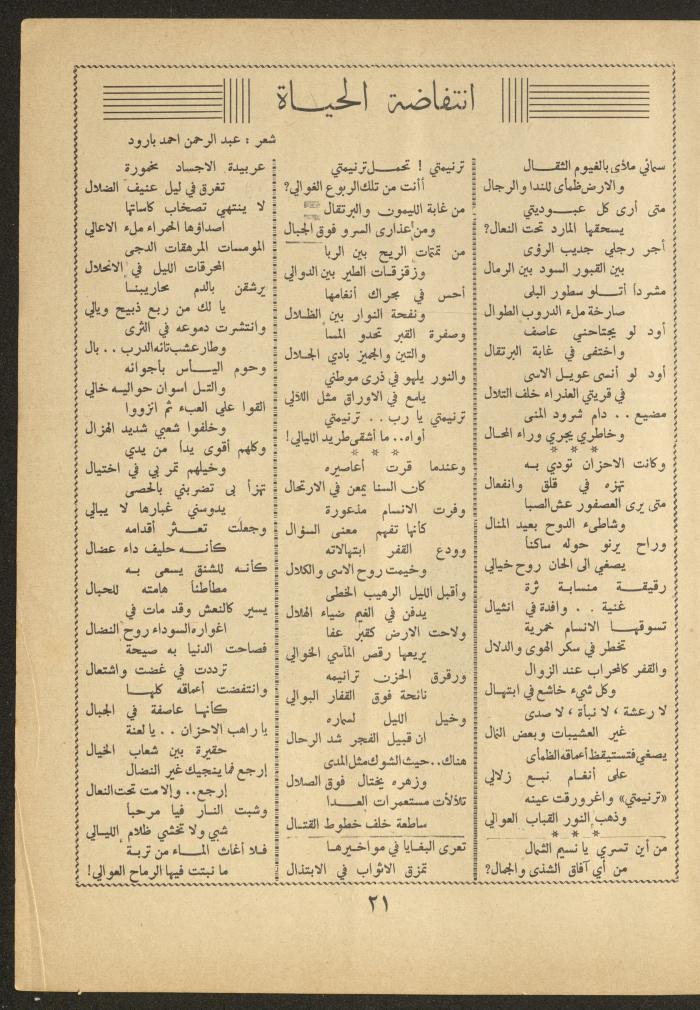 انتفاضة الحياة
شعر : عبد الرحمن احمد بارود
سمائي ملأى بالغيوم الثقال
والارض ظمأى للندا والرجال
متى أرى كل عبوديتي
يسحقها المارد تحت النعال؟
أجر رجلي جديب الرؤى
بين القبور السود بين الرمال
مشرداً أتلو سطور البلى
صارخة ملء الدروب الطوال
أود لو يجتاحني عاصف
واختفى في غابة البرتقال
أود لو أنسى عويل الاسى
في قريتي العذراء خلف التلال
مضيع .. دام شرود المنى
وخاطري يجري وراء المحال
* * *
وكانت الاحزان تودي به
تهزه في قلق وانفعال
متى يرى العصفور عش الصبا
وشاطىء الدوح بعيد المنال
وراح يرنو حوله ساكناً
يصغي الى الحان روح خيالي
رقيقة منسابة ثرة
غنية .. وافدة في انثيال
تسوقها الانسام خمرية
تخطر في سكر الهوى والدلال
والقفر كالمحراب عند الزوال
وكل شيء خاشع في ابتهال
لا رعشة ، لا نبأة ، لا صدى
غير العشيبات وبعض النمال
يصغي فتستيقظ أعماقه الظمأى
على أنغام نبع زلالي
«ترنيمتي» واغرورقت عينه
وذهب النور القباب العوالي
* * *
من أين تسري يا نسيم الشمال
من أي آفاق الشذى والجمال؟
ترنيمتي ! تحمل ترنيمتي
أأنت من تلك الربوع الغوالي؟
من غابة الليمون والبرتقال
ومن عذارى السرو فوق الجبال
من تمتمات الريح بين الربا
وزقزقات الطير بين الدوالي
أحس في مجراك أنغامها
ونفحة النوار بين الظلال
وصفرة القبر تحدو المسا
والتين والجميز بادي الجلال
والنور يلهو في ذرى موطني
يلمع في الاوراق مثل اللآلي
ترنيمتي يا رب .. ترنيمتي
أواه.. ما أشقى طريد الليالي!
* * *
وعندما قرت أعاصيره
كان السنا يمعن في الارتحال
وفرت الانسام مذعورة
كأنها تفهم معنى السؤال
وودع القفر ابتهالاته
وخيمت روح الاسى والكلال
وأقبل الليل الرهيب الخطى
يدفن في الغيم ضياء الهلال
ولاحت الارض كقبر عفا
يريعها رقص المآسي الخوالي
ورقرق الحزن ترانيمه
نائحة فوق القفار البوالي
وخيل الليل لسماره
ان قبيل الفجر شد الرحال
هناك..حيث الشوك مثل المدى
وزهره يختال فوق الصلال
تلألأت مستعمرات العدا
ساطعة خلف خطوط القتال
تعرى البغايا في مواخيرها
تمزق الاثواب في الابتذال
عربيدة الاجساد مخمورة
تغرق في ليل عنيف الضلال
لا ينتهي تصخاب كاساتها
أصداؤها الحمراء ملء الاعالي
المومسات المرهقات الدجى
المحرقات الليل في الانحلال
يرشقن بالدم محاريبنا
يا لك من ربع ذبيح ويالي
وانتشرت دموعه في الثرى
وطار عشب تانه الدرب .. بال
وحوم اليأس بأجوائه
والتل اسوان حواليه خالي
القوا على العبء ثم انزووا
وخلفوا شعبي شديد الهزال
وكلهم أقوى يدا من يدي
وخيلهم تمر بي في اختيال
تهزأ بي تضربني بالحصى
يدوسني غبارها لا يبالي
وجعلت تعثر أقدامه
كأنه حليف داء عضال
كأنه للشنق يسعى به
مطأطأ هامته للحبال
يسير كالنعش وقد مات في
اغواره السوداء روح النضال
فصاحت الدنيا به صيحة
ترددت في غضب واشتعال
وانتفضت أعماقه كلها
كأنها عاصفة في الجبال
يا راهب الاحزان .. يا لعنة
حقيرة بين شعاب الخيال
إرجع فما ينجيك غير النضال
إرجع.. وإلا مت تحت النعال
وشبت النار فيا مرحباً
شبي ولا تخشي ظلام الليالي
فلا أغاث الماء من تربة
ما نبتت فيها الرماح العوالي!
٢١